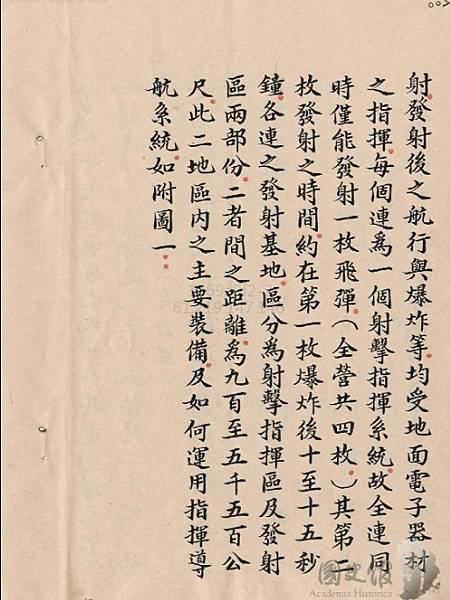 射發射後之航行與爆炸等均受地面電子器材
之指揮每個連為一個射擊指揮系統故全連同
時僅能發射一枚飛彈(全營共四枚)其第二
枚發射之時間約在第一枚爆炸後十至十五秒
鐘各連之發射基地區分為射擊指揮區及發射
區兩部份二者間之距離為九百至五千五百公
尺此二地區內之主要裝備及如何運用指揮導
航系統如附圖一:
國史館
Academia Historica